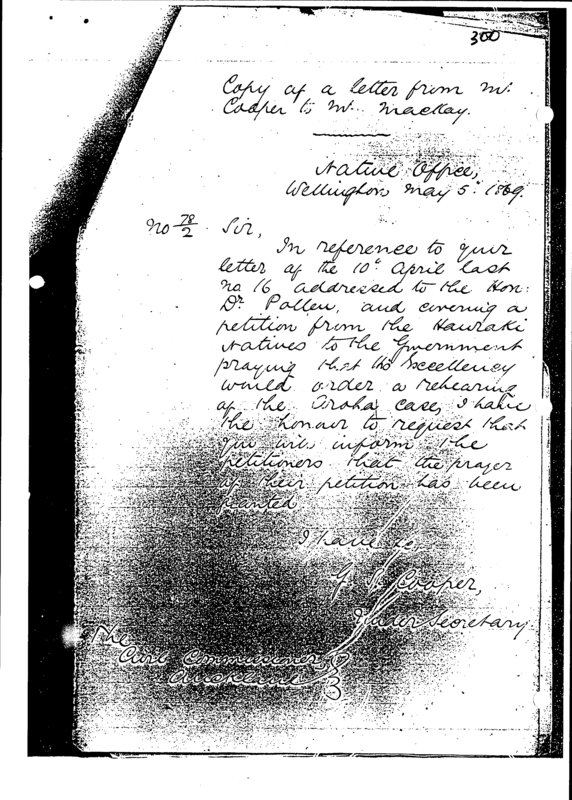 300
Copy of a letter from Mr.
Cooper to Mr. Mackay.
Native Office,
Wellington May 5th 1869.
No 78/2 Sir,
In reference to your
letter of the 10th April last
No 16 addressed to the Hon:
Dr. Pollen, and covering a
petition from the Hauraki
Natives to the Government
praying that His Excellency
would order a rehearing
of the Aroha case, I have
the honour to request that
you will inform the
petitioners that the prayer
of their petition has been
granted
I have &c
G. S. Cooper,
Under Secretary.
The
Civil Commissioner
Auckland